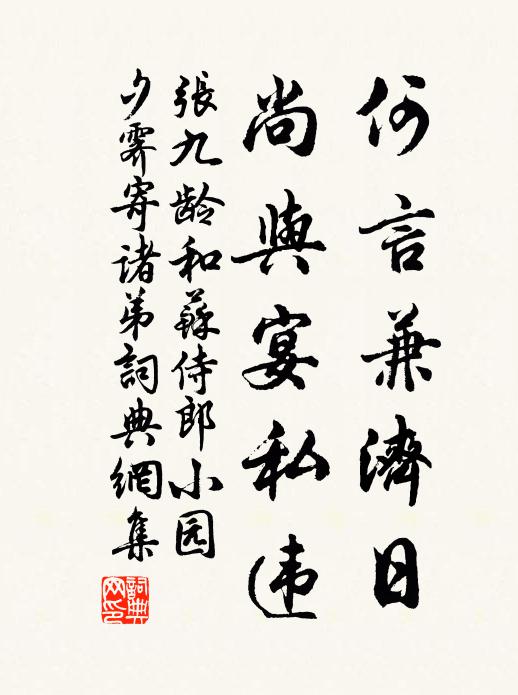 何言兼濟日
尚與宴私违
張九龄和蘇侍郎小园
夕霽寄诸弟詞典網集
詞典網印